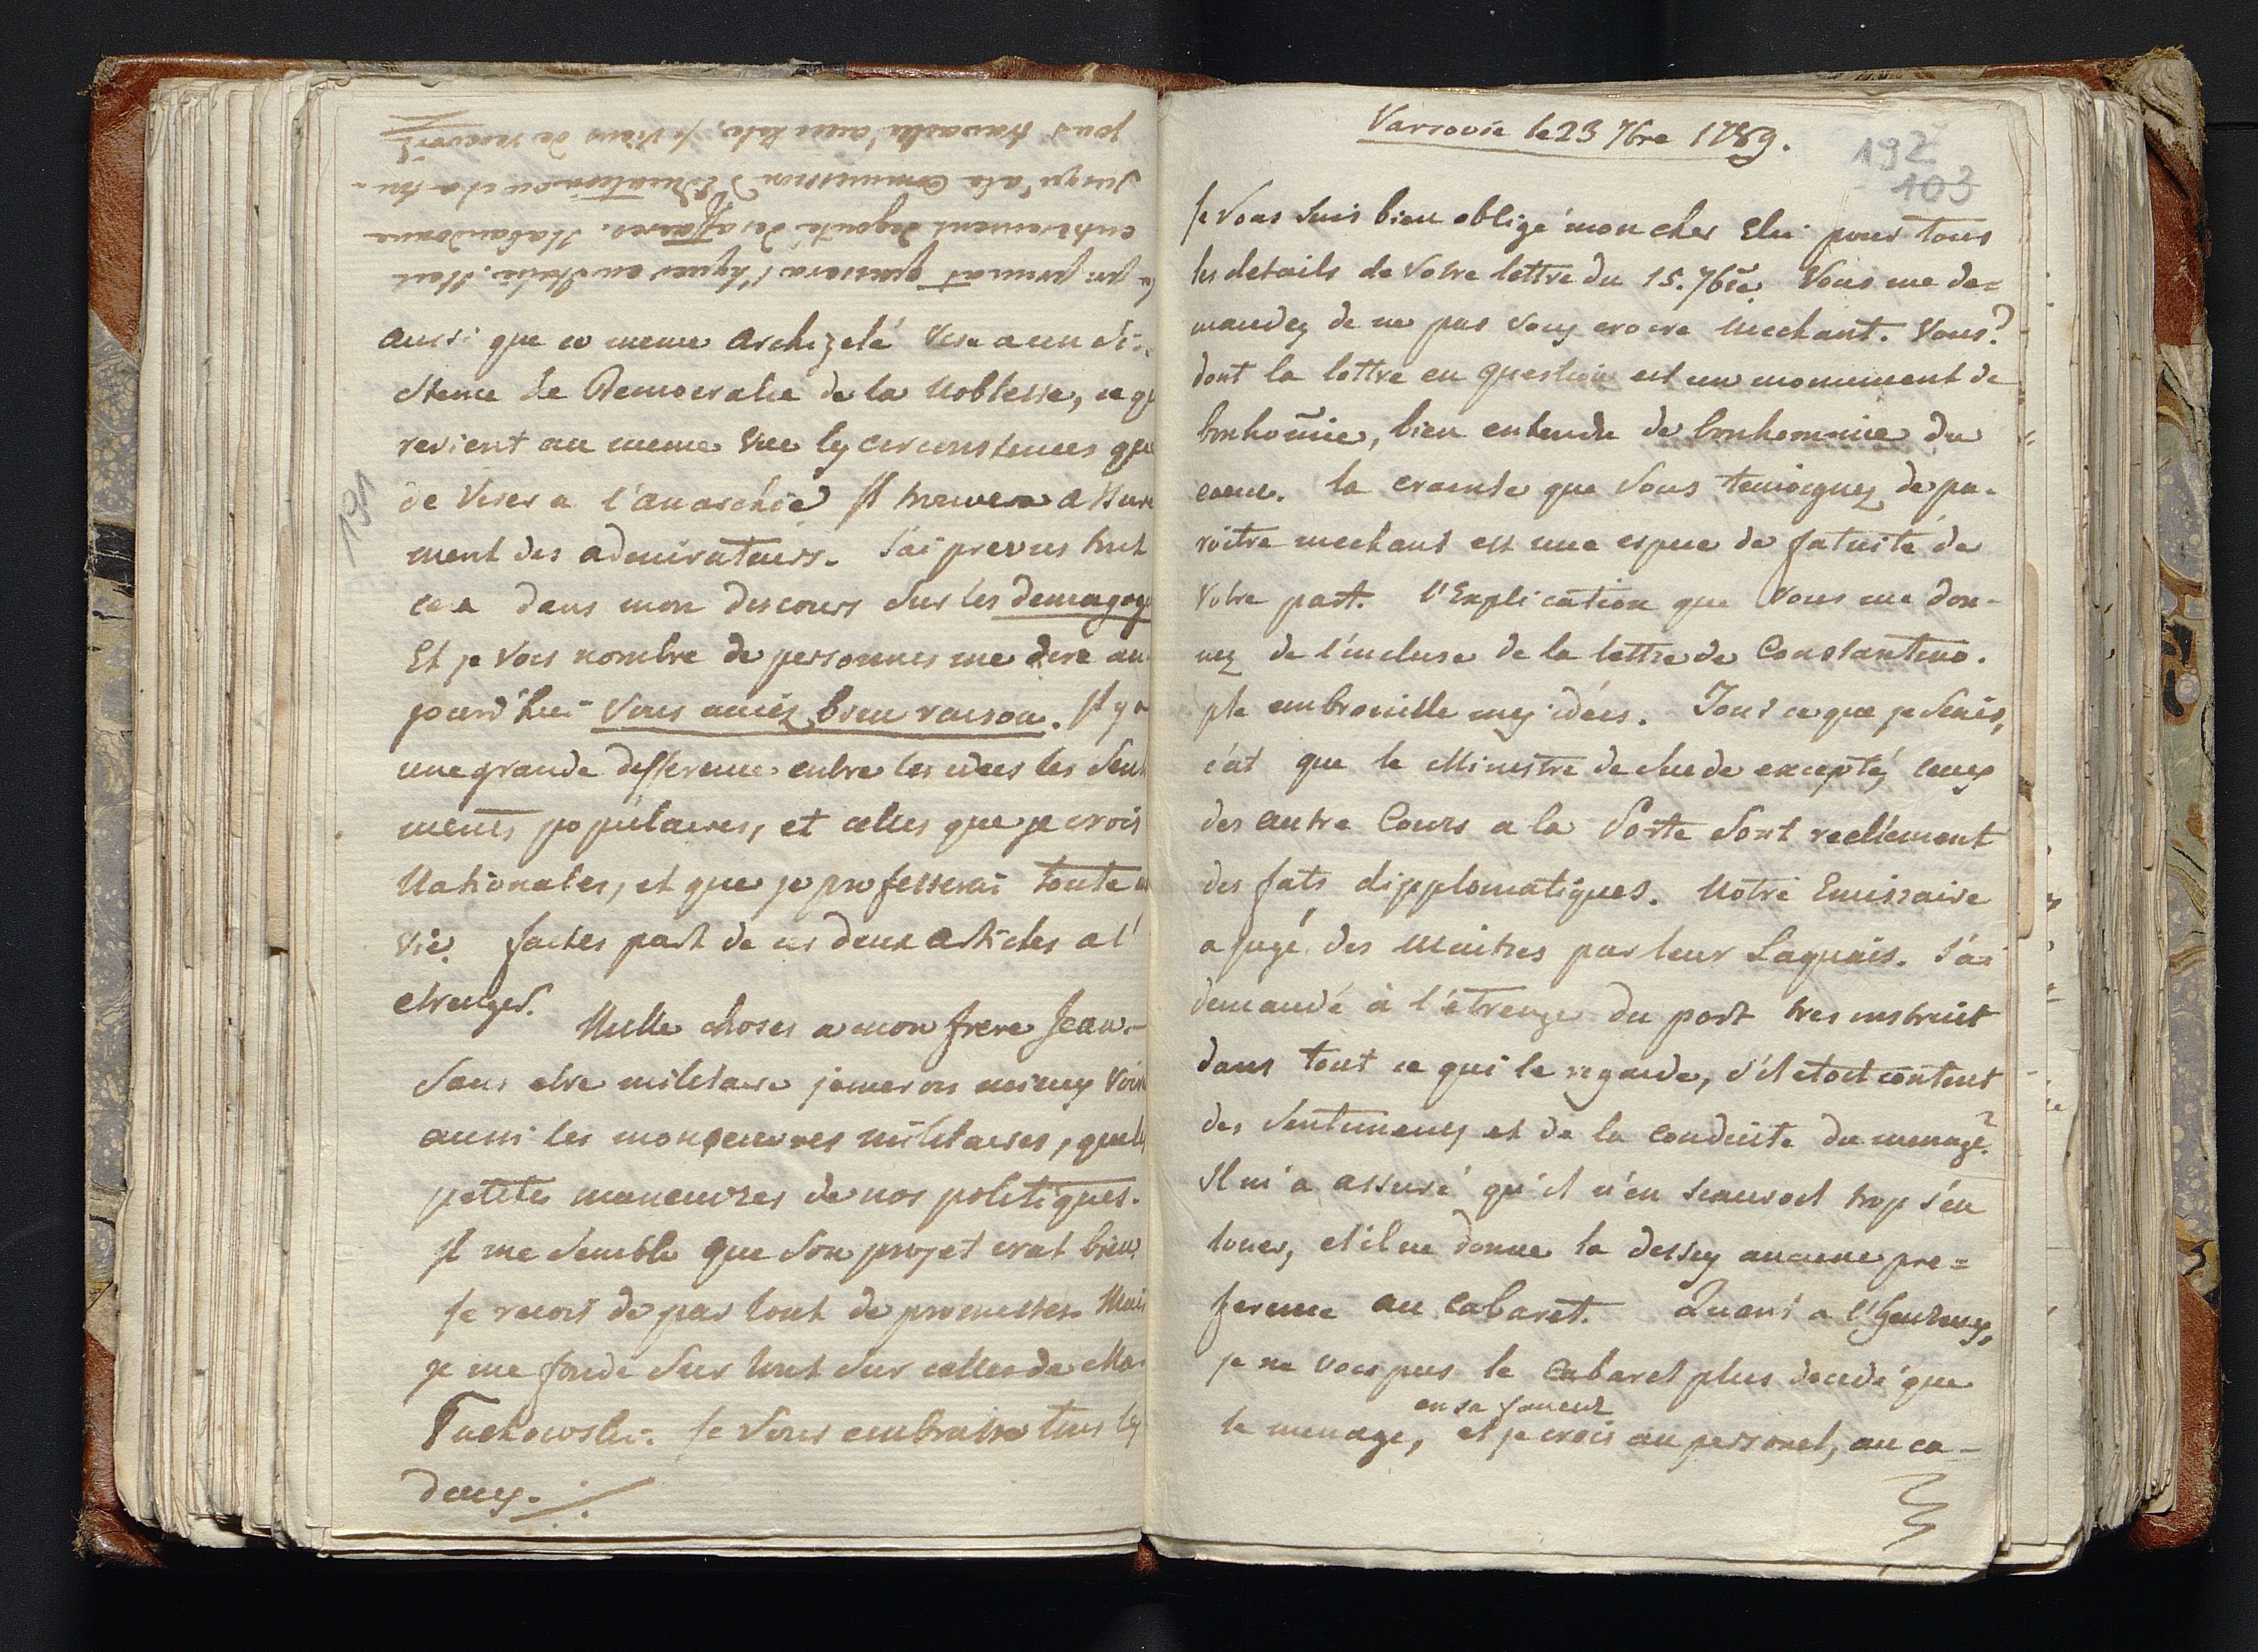 le pr primat passera l'hyver en Italie. Il est
entierement degouté des affaires. Il abandonne
jusqu'a la Commission d'Education ou il a tou-
jours travaillé avec zele. Je viens de recevoir
aussi que ce meme Archizelé vise a un di-
stence de Democratie de la Noblesse, ce qu
revient au meme vue les circonstences que
de viser a l'anarchie. Il trouvera assure
ment des admirateurs. J'ai prevus tout
cela dans mon discours sur les demagog
Et je vois nombre de personnes me dire au
jourd'hui Vous aviez bien raison. Il y a
une grande difference entre les idées les sent
ments populaires, et celles que je crois
Nationales, et que je professerai toute m
vie. faites part de ces deux articles a l'
etrenger.
Mille choses a mon frere Jean.-
Sans etre militaire j'aimerois mieux voir
aussi les monœuvres militaires, que les
petites maneuvres de nos politiques.
Il me semble que son projet irat bien.
Je recois de par tout de promesses. Mais
je me fonde sur tout sur celles de
Tuchowski. Je vous embrasse tous les
deux.
191
Varsovie le 23 7bre 1789.
192
103
Je vous suis bien obligé mon cher Elu pour tous
les details de votre lettre du 15. 7bre. Vous me de=
mandez de ne pas vous croire mechant. Vous?
dont la lettre en question est un monument de
bonhomie, bien entendu de bonhommie du
coeur. la crainte que vous temoignez de pa-
roitre mechant est une espece de fatuité de
votre part. l'Explication que vous me don-
nez de l'incluse de la lettre de Constantino-
ple embrouille mes idées. Tout ce que je scais,
c'est que le Ministre de Suede excepté, ceux
des autre Cours a la Porte sont reellement
des fats dipplomatiques. Notre Emissaire
a jugé des Maitres par leur Laquais. J'ai
demandé à l'étrenge du port tres instruit
dans tout ce qui le regarde, s'il etoit content
des sentimens et de la conduite du menage?
Il m'a assuré qu'il n'en scauroit trop s'en
louer, et il ne donne la dessus aucune pre=
ference au cabaret. Quant a
je ne vois pas le cabaret plus decidé que
en sa faveur
le menage, et je crois au personel, au ca-